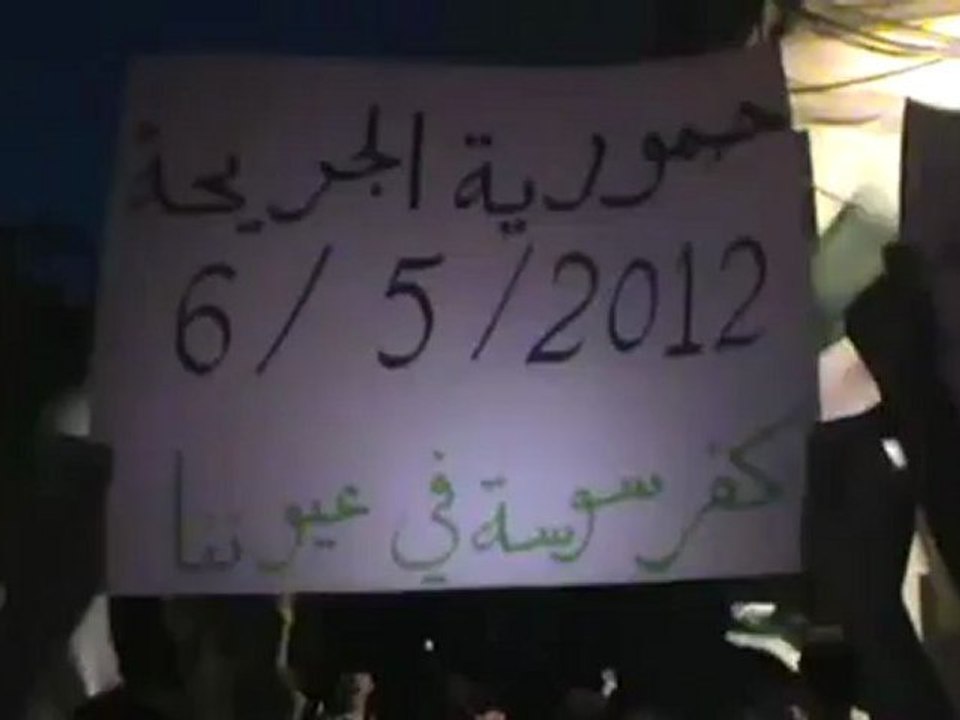 جمهورية الجريحة
6/5/2012
كفرسوسة في عيوننا